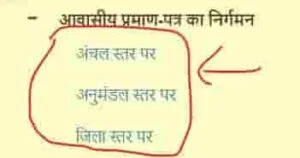 - आवासीय प्रमाण-पत्र का निर्गमन
अंचल स्तर पर
अनुमंडल स्तर पर
जिला स्तर पर